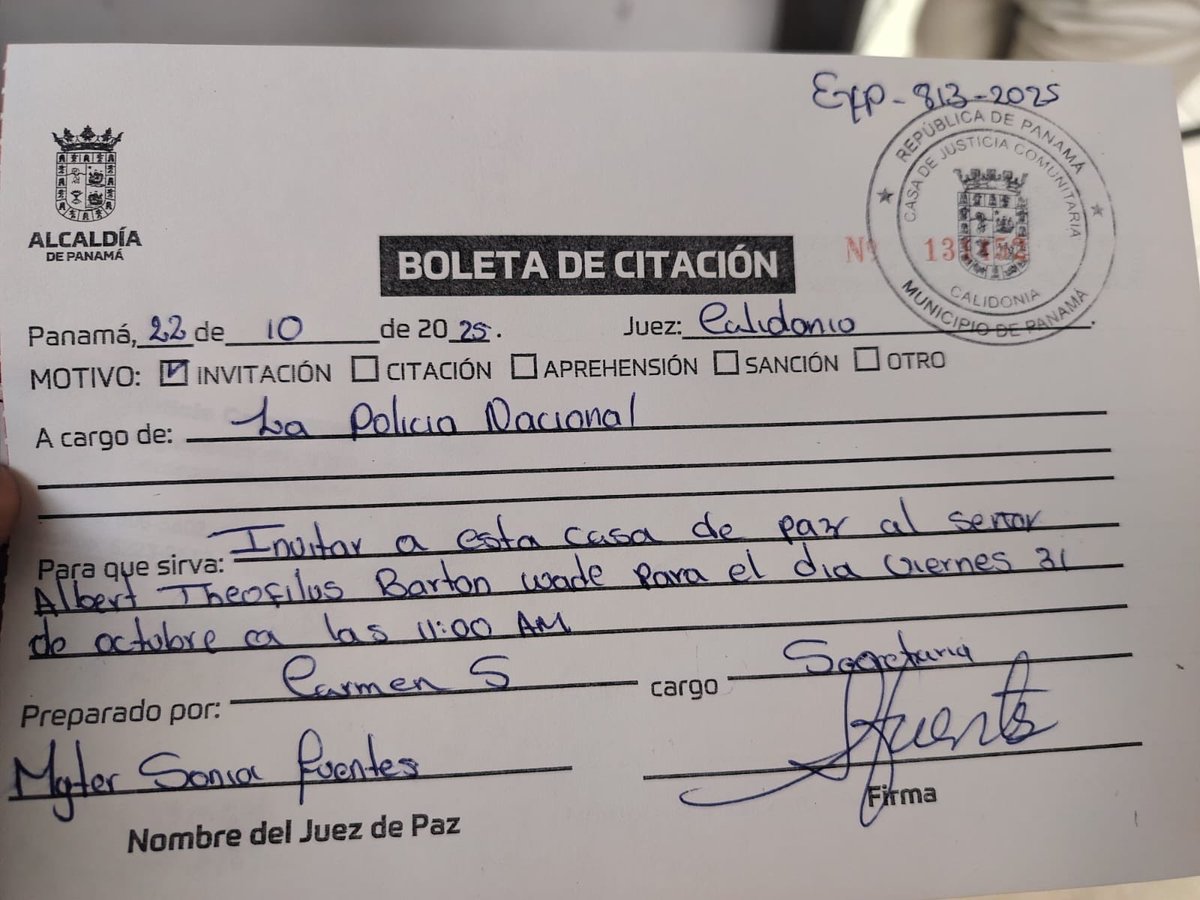 Exp - 813-2025
REPÚBLICA DE PANAMÁ
CASA DE JUSTICIA COMUNITARIA
CALIDONIA
MUNICIPIO DE PANAMÁ
ALCALDÍA
DE PANAMÁ
BOLETA DE CITACIÓN
Nº
Panamá, 22 de 10 de 2025. Juez: Calidonia
MOTIVO: ☑ INVITACIÓN ☐ CITACIÓN ☐ APREHENSIÓN ☐ SANCIÓN ☐ OTRO
A cargo de: La Policia Nacional
Para que sirva: Invitar a esta casa de paz al señor
Albert Theofilus Barton wade para el dia viernes 31
de octubre a las 11:00 AM
Preparado por: Carmen S cargo Secretaria
Mgter Sonia Fuentes
SFuentes
Nombre del Juez de Paz Firma